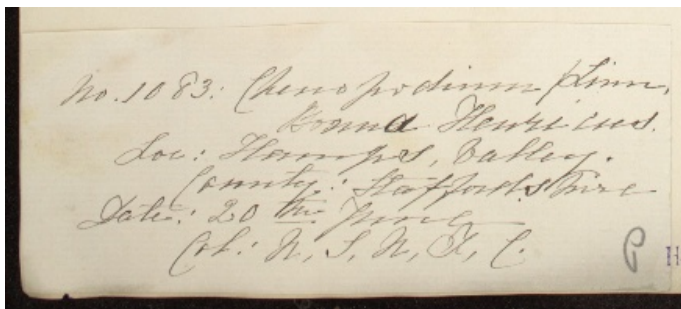 No. 1083: Chenopodium Linn.
Bonus Henricus.
Loc: Hamps, Valley.
County: Staffordshire
Date: 20th
Col: N, S, N, F, C.
P H